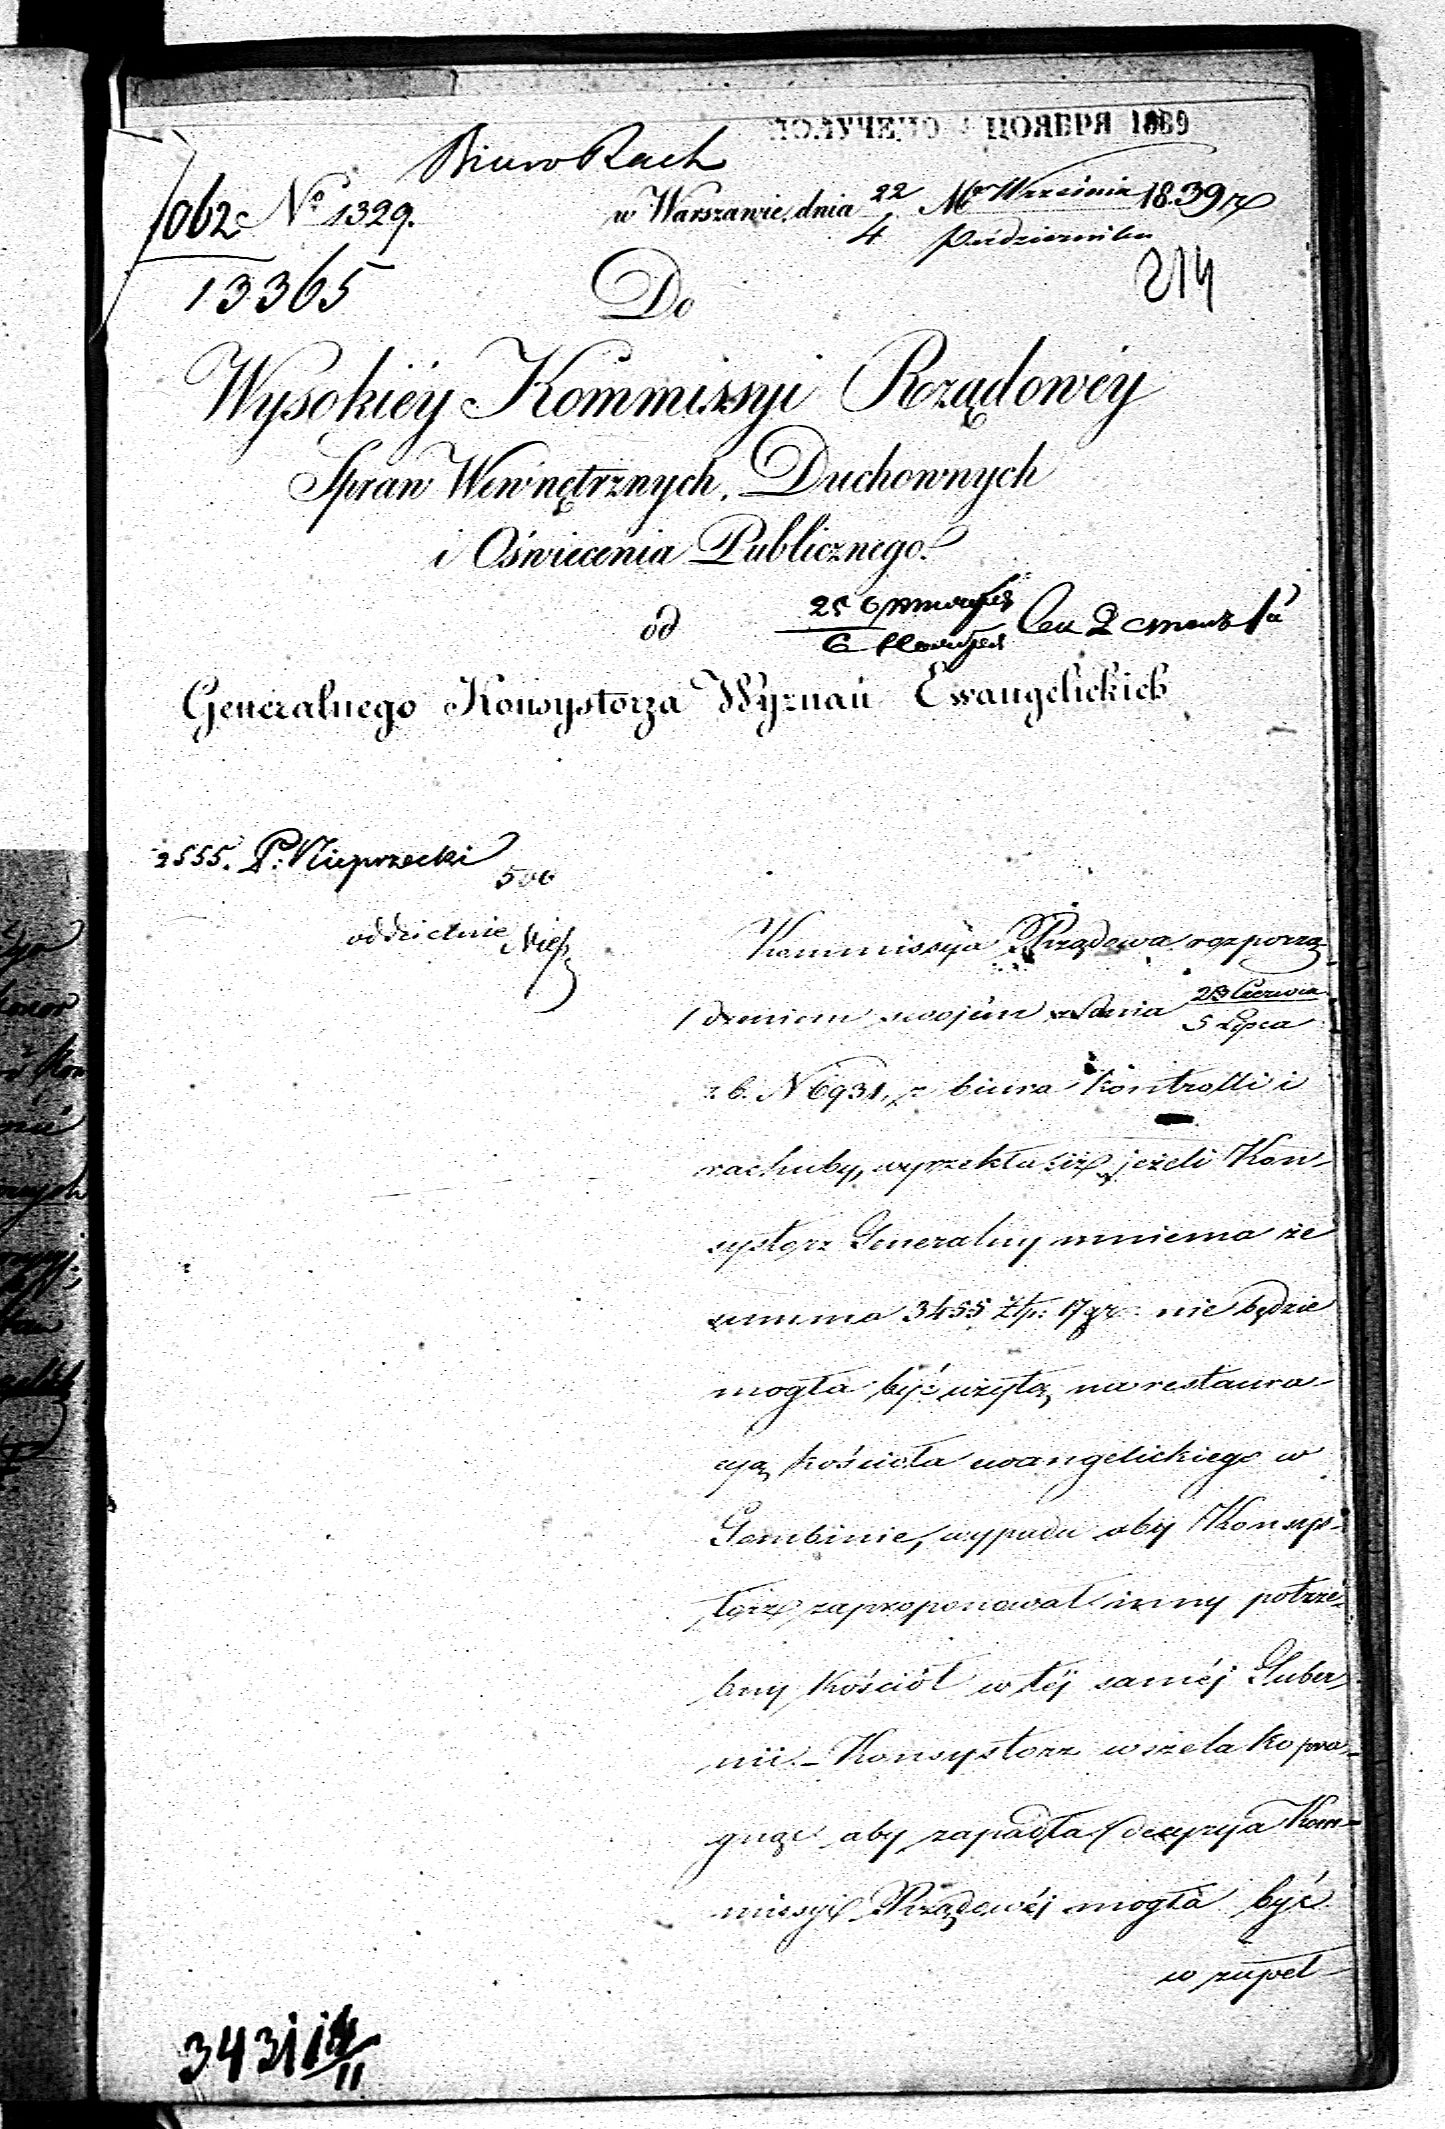 ПОЛУЧЕНО НОЯБРЯ 1839
Biuro Rach
1062 No 1329.
w Warszawie, dnia 22 Września 1839 r
4 Października
13365
214
Do
Wysokiéy Kommissyi Rządowéy
Spraw Wewnętrznych, Duchownych
i Oświecenia Publicznego.
od
25
6
Generalnego Konsystorza Wyznań Ewangelickich
2555. P. Nieprzecki
500
oddzielnie
Kommissyja Rządowa rozporzą-
dzeniem swojém z dnia 23 Czerwca
5 Lipca
r. b. N 6931, z biura kontrolli i
rachuby, wyrzekła iż jeżeli Kon-
systorz Generalny mniema że
summa 3455 Złp: 17 gr: nie będzie
mogła być użytą na restaura-
cyą kościoła ewangelickiego w
Gombinie, wypada aby Konsys-
torz zaproponował inny potrze-
bny kościół w téj saméj Guber-
nii. – Konsystorz wszelako pra-
gnąc aby zapadła decyzyja Kom-
missyi Rządowéj mogła być
w zupeł-
3431 14/11